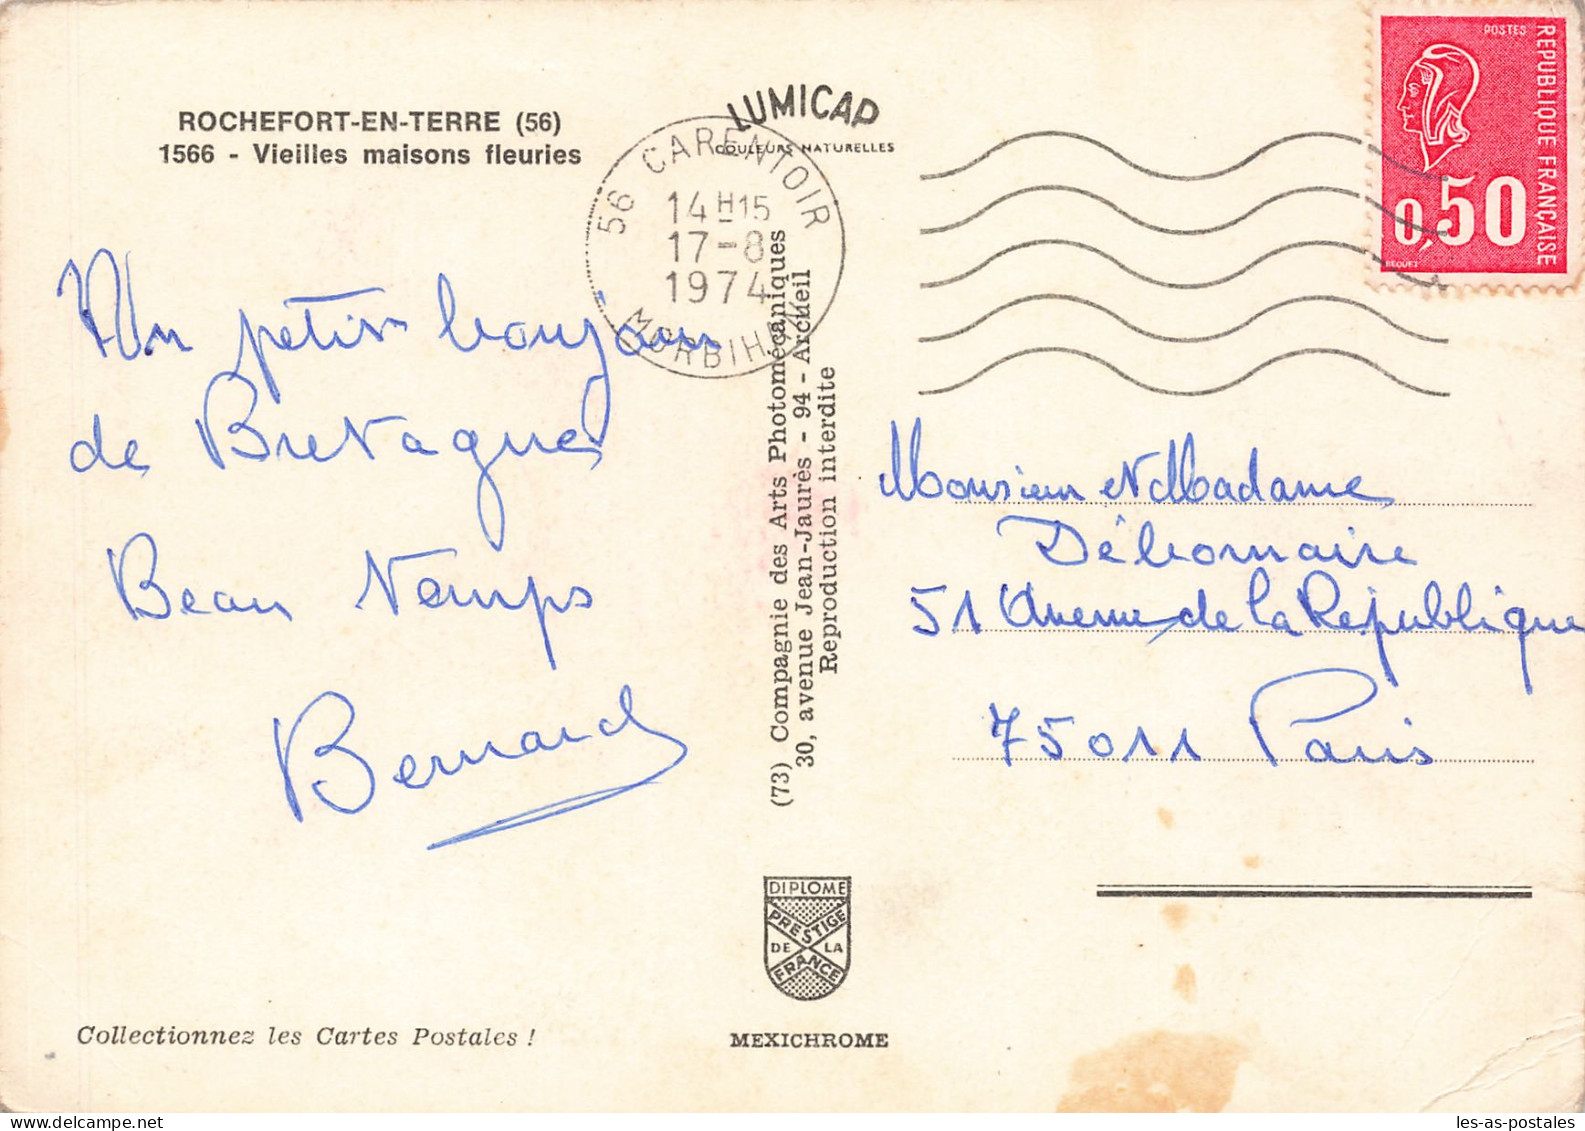 ROCHEFORT-EN-TERRE (56)
1566 - Vieilles maisons fleuries
LUMICAP
COULEURS NATURELLES
56 CARENTOIR
14H15
17-8
1974
MORBIHAN
POSTES
REPUBLIQUE FRANÇAISE
0,50
BEQUET
Un petit bonjour
de Bretagne
Beau temps
Bernard
(73) Compagnie des Arts Photomécaniques
30, avenue Jean-Jaurès - 94 - Arcueil
Reproduction interdite
Monsieur et Madame
Débonnaire
51 Avenue de la République
75011 Paris
DIPLOME
PRESTIGE
DE LA
FRANCE
Collectionnez les Cartes Postales !
MEXICHROME
delcampe.net
les-as-postales